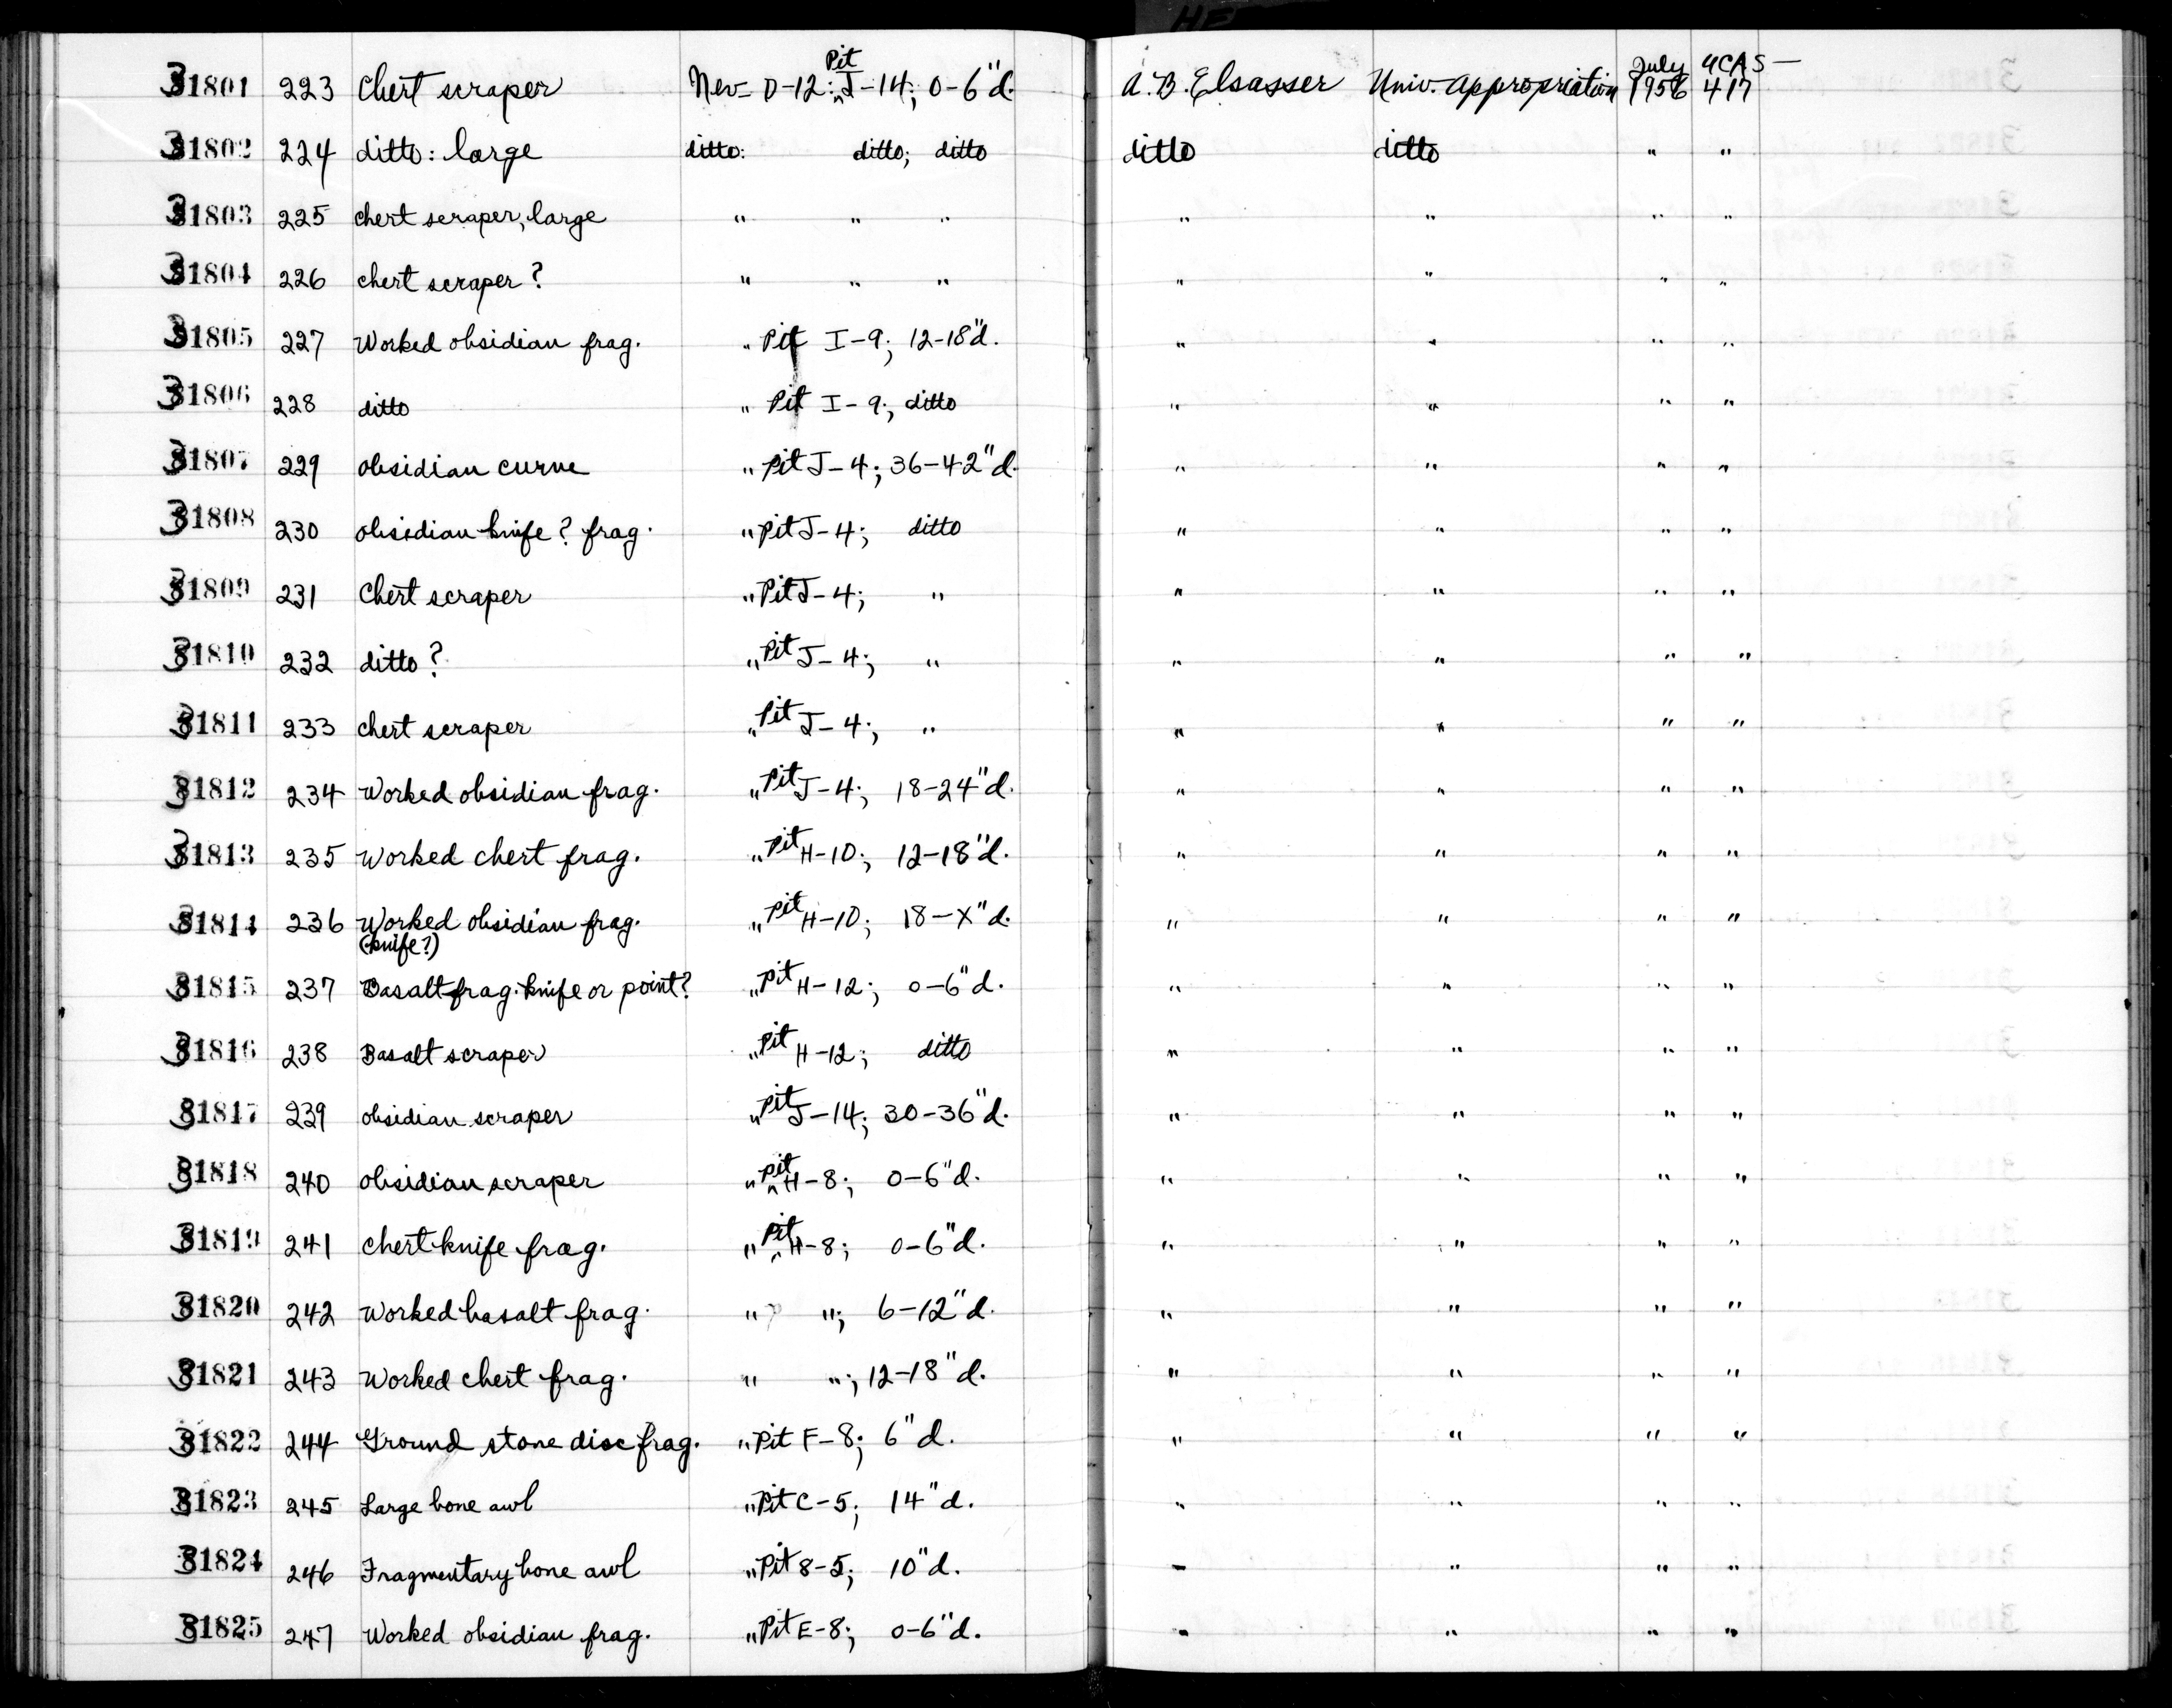 HE
31801 223 Chert scraper Nev- D-12: Pit J-14; 0-6"d. A.B. Elsasser Univ. Appropriation July 1956 UCAS- 417
31802 224 ditto: large ditto: ditto; ditto ditto ditto " "
31803 225 chert scraper, large " " " " " " "
31804 226 chert scraper? " " " " " " "
31805 227 Worked obsidian frag. " Pit I-9; 12-18"d. " " " "
31806 228 ditto " Pit I-9; ditto " " " "
31807 229 obsidian curve " Pit J-4; 36-42"d. " " " "
31808 230 obsidian knife? frag. " Pit J-4; ditto " " " "
31809 231 Chert scraper " Pit J-4; " " " " "
31810 232 ditto? " Pit J-4; " " " " "
31811 233 chert scraper " Pit J-4; " " " " "
31812 234 Worked obsidian frag. " Pit J-4; 18-24"d. " " " "
31813 235 Worked chert frag. " Pit H-10; 12-18"d. " " " "
31814 236 Worked obsidian frag. " Pit H-10; 18-X"d. " " " "
(knife?)
31815 237 Basalt frag. knife or point? " Pit H-12; 0-6"d. " " " "
31816 238 Basalt scraper " Pit H-12; ditto " " " "
31817 239 obsidian scraper " Pit J-14; 30-36"d. " " " "
31818 240 obsidian scraper " Pit H-8; 0-6"d. " " " "
31819 241 chert knife frag. " Pit H-8; 0-6"d. " " " "
31820 242 Worked basalt frag. " "; 6-12"d. " " " "
31821 243 Worked chert frag. " "; 12-18"d. " " " "
31822 244 Ground stone disc frag. " Pit F-8; 6"d. " " " "
31823 245 Large bone awl " Pit C-5; 14"d. " " " "
31824 246 Fragmentary bone awl " Pit 8-5; 10"d. " " " "
31825 247 Worked obsidian frag. " Pit E-8; 0-6"d. " " " "